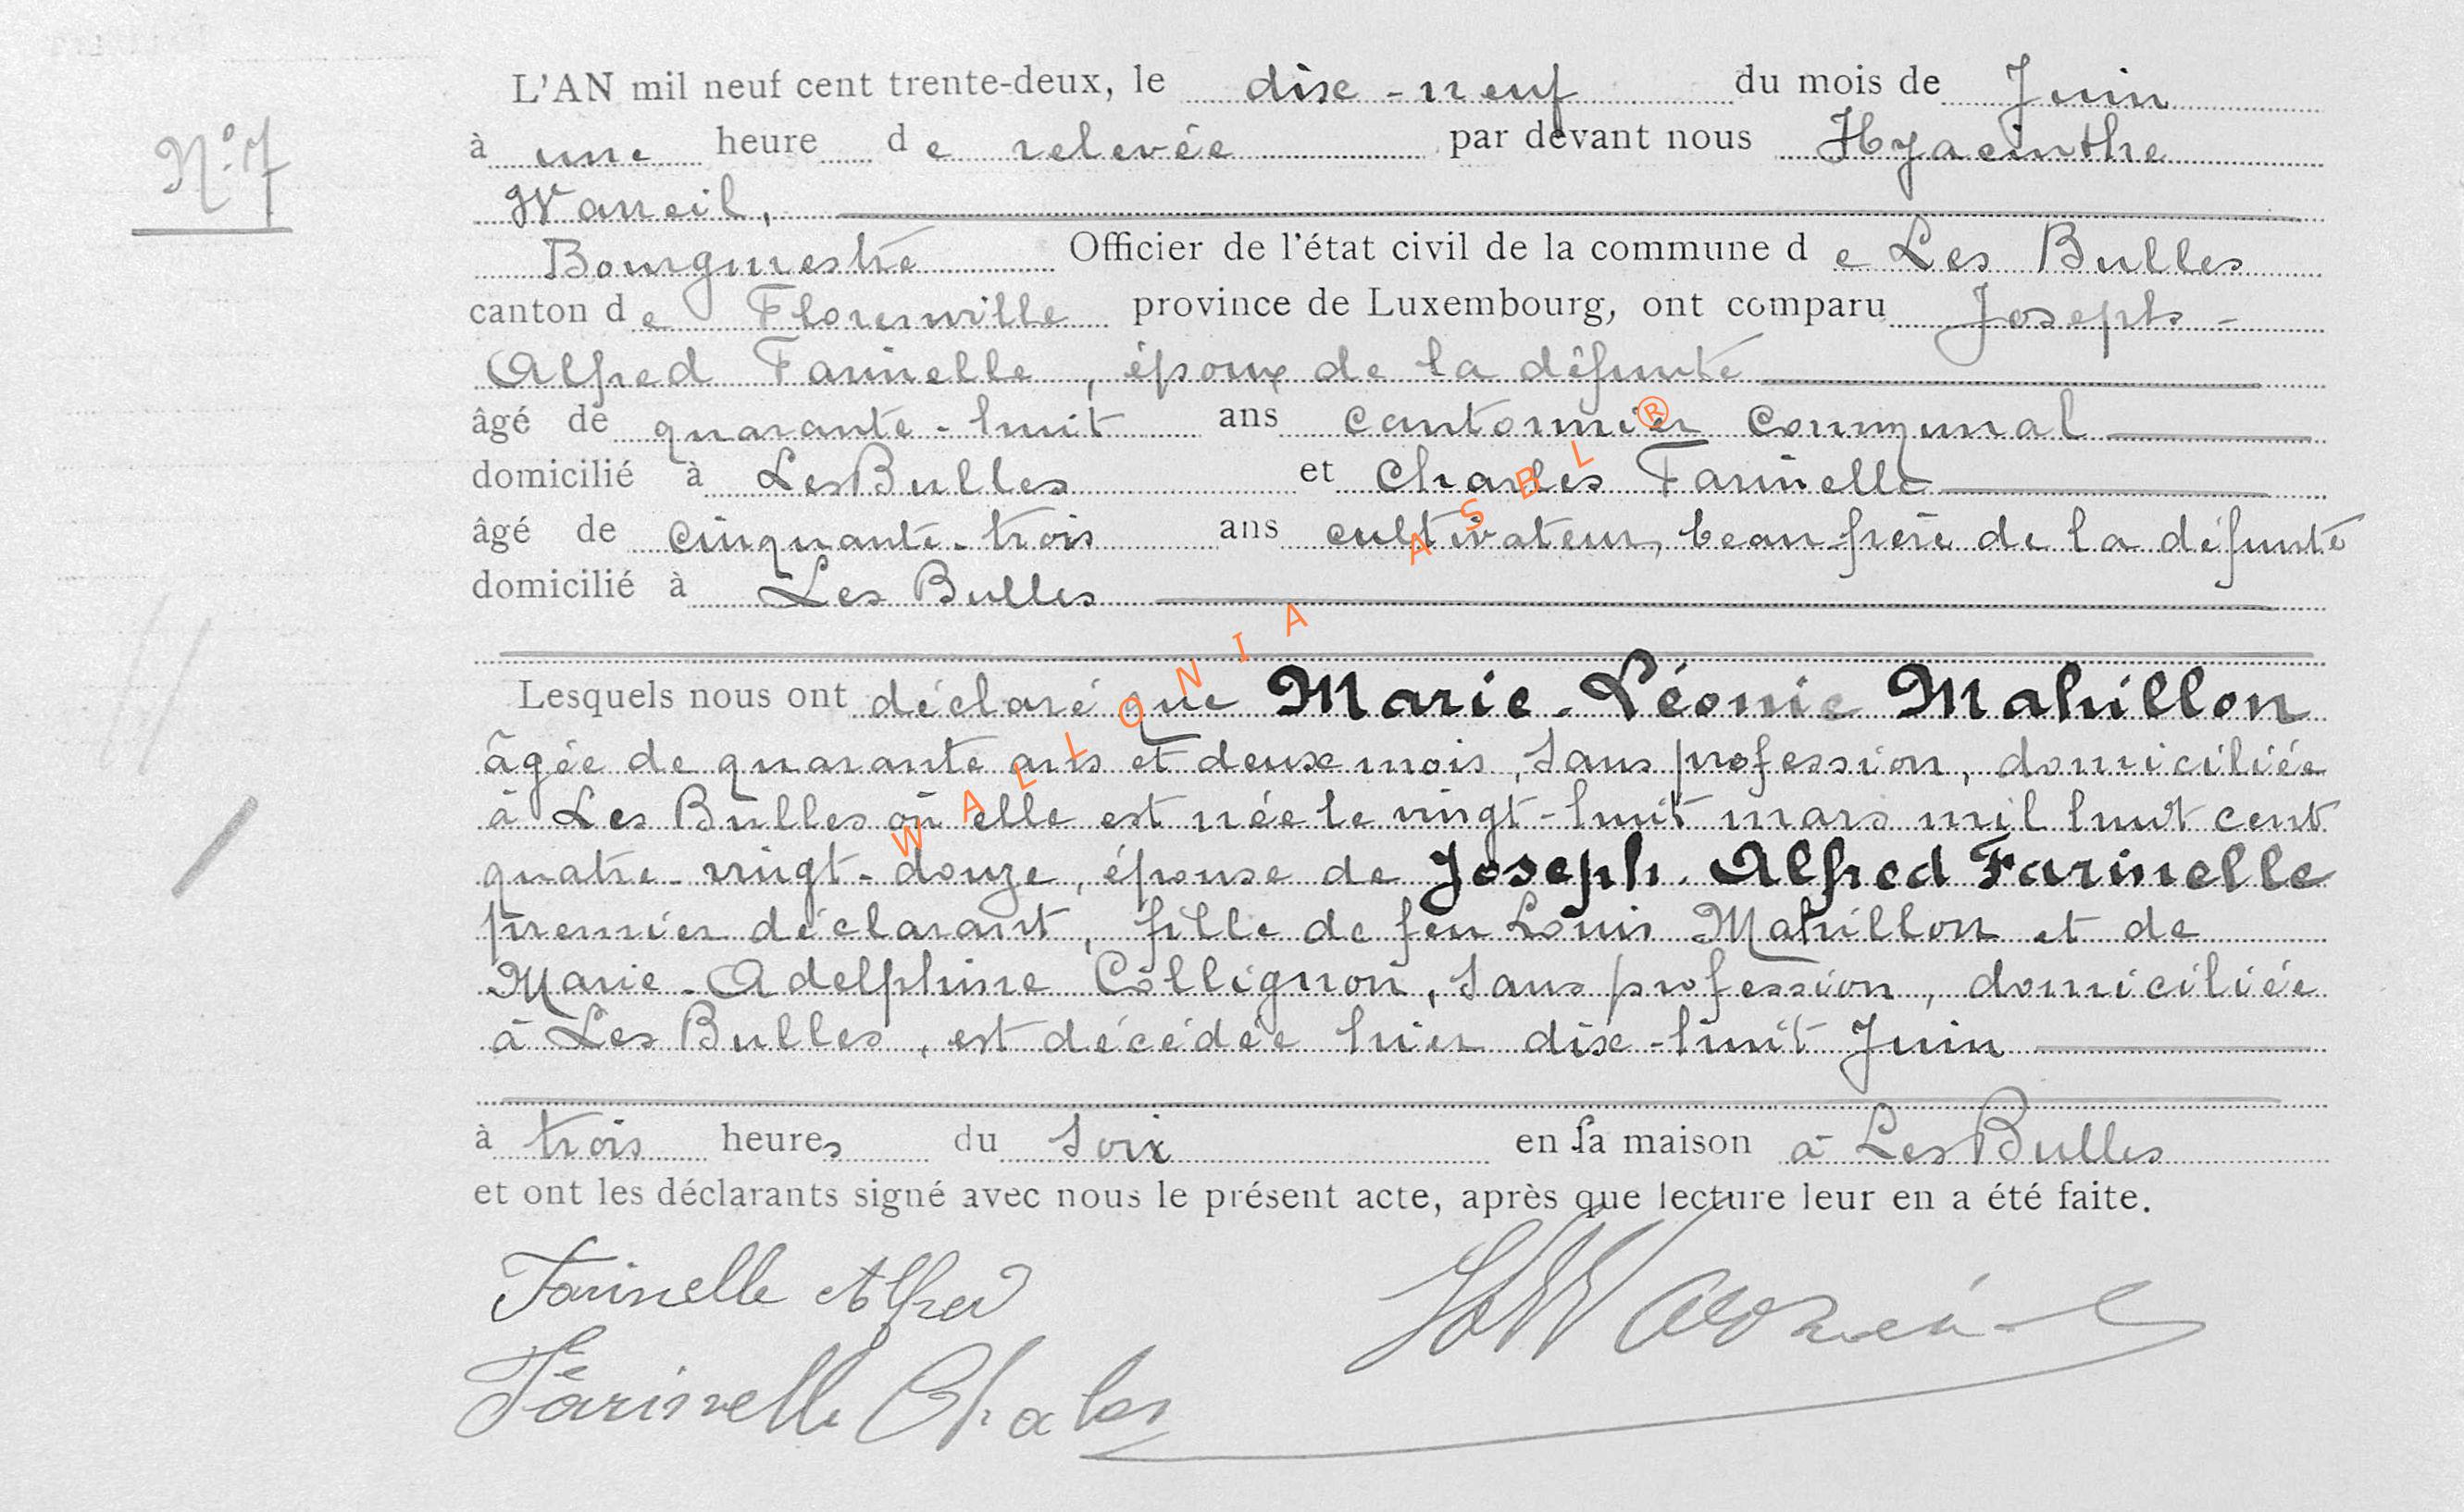 L'AN mil neuf cent trente-deux, le dix-neuf du mois de Juin
N° 7
à une heure de relevée par devant nous Hyacinthe
Waneil,
Bourgmestre Officier de l'état civil de la commune de Les Bulles
canton de Florenville province de Luxembourg, ont comparu Joseph-
Alfred Farinelle, époux de la défunte
âgé de quarante-huit ans cantonnier communal
domicilié à Les Bulles et Charles Farinelle
âgé de cinquante-trois ans cultivateur, beau frère de la défunte
domicilié à Les Bulles
Lesquels nous ont déclaré que Marie-Léonie Mahillon
âgée de quarante ans et deux mois, sans profession, domiciliée
à Les Bulles où elle est née le vingt-huit mars mil huit cent
quatre-vingt-douze, épouse de Joseph-Alfred Farinelle
premier déclarant, fille de feu Louis Mahillon et de
Marie-Adelphine Collignon, sans profession, domiciliée
à Les Bulles, est décédée hier dix-huit Juin
à trois heures du soir en sa maison à Les Bulles
et ont les déclarants signé avec nous le présent acte, après que lecture leur en a été faite.
Farinelle Alfred
Farinelle Chales
WALLONIA ASBL ®